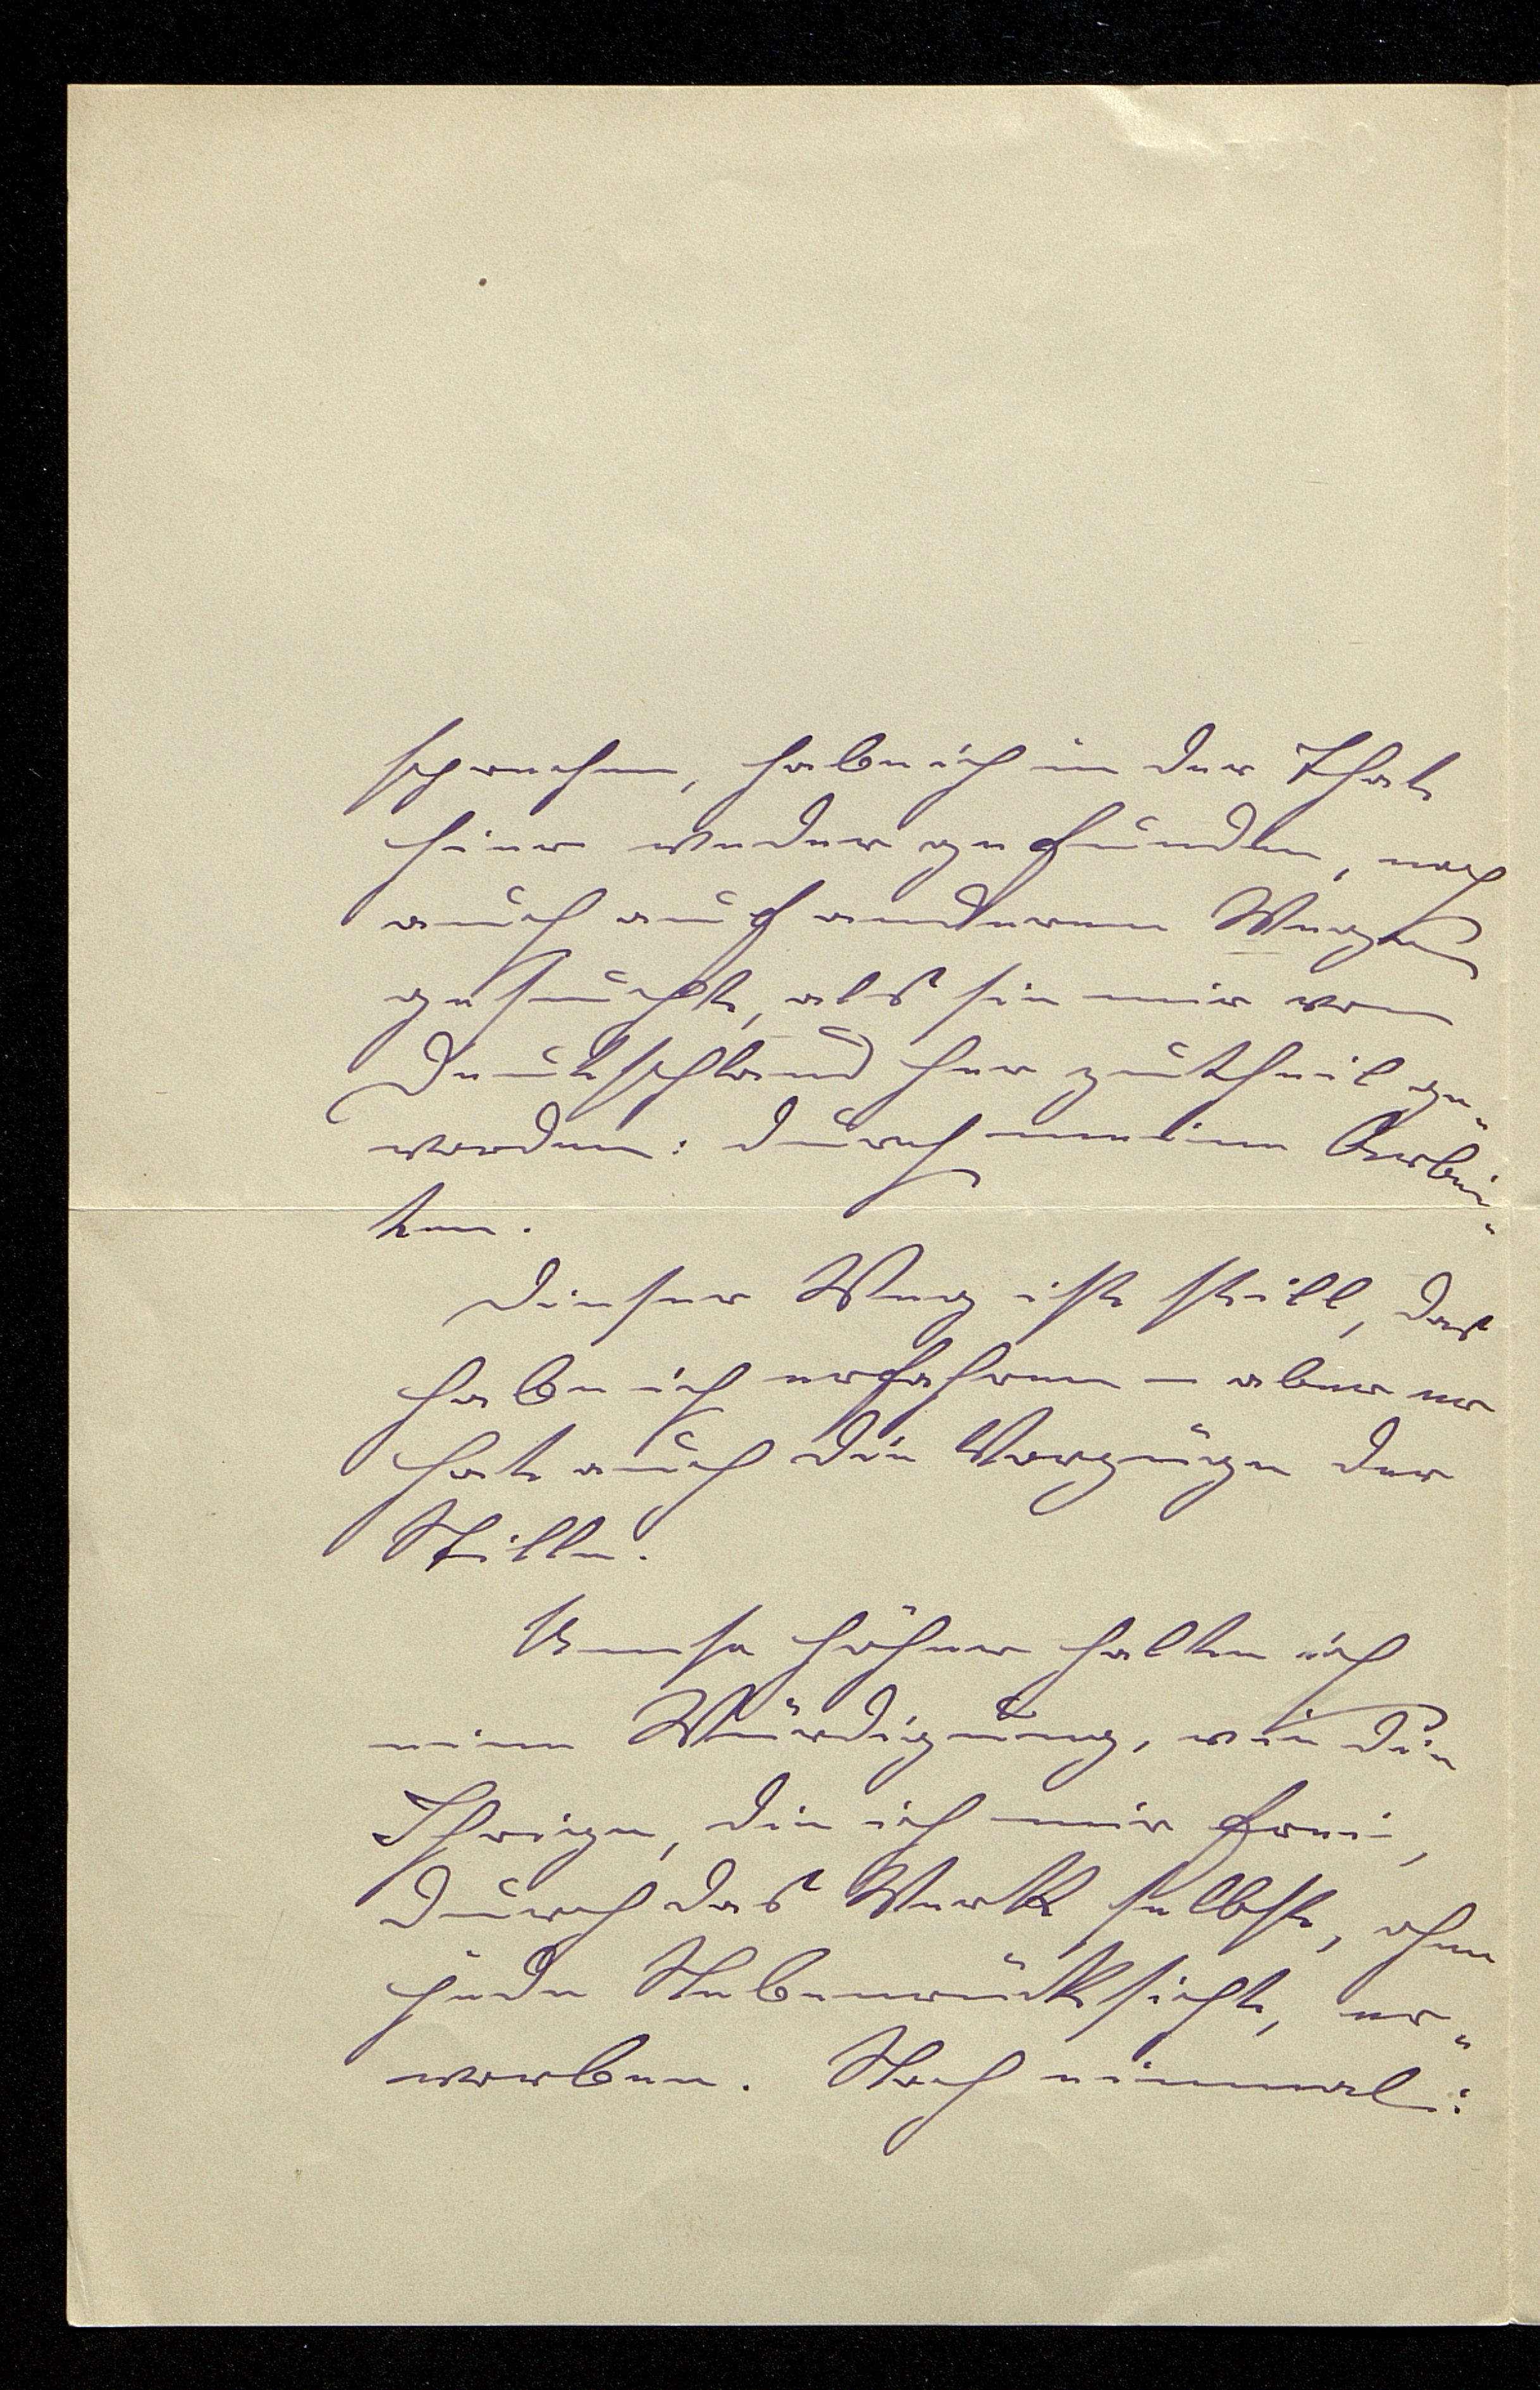 sprechen, habe ich in der That
hier weder gefunden, noch
auch auf anderem Wege
gesucht, als sie mir von
Deutschland her zutheil ge-
worden: durch meine Arbei-
ten.
Dieser Weg ist still, das
habe ich erfahren – aber er
hat auch die Vorzüge der
Stille.
Umso höher halte ich
eine Würdigung, wie die
Ihrige, die ich mir frei,
durch das Werk selbst, ohne
jede Nebenrücksicht, er-
worben. Noch einmal: